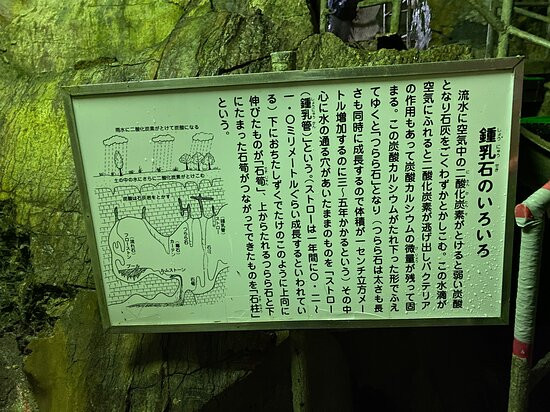 鍾乳石のいろいろ
流水に空気中の二酸化炭素がとけると弱い炭酸
となり石灰をごくわずかとかしこむ。この水滴が
空気にふれると二酸化炭素が逃げ出しバクテリア
の作用もあって炭酸カルシウムの微量が残って固
まる。この炭酸カルシウムがたれ下った形でふえ
てゆくと「つらら石」となり（つらら石は太さも長
さも同時に成長するので体積が一センチ立方メー
トル増加するのに三〜五年かかるという）その中
心に水の通る穴があいたままのものを「ストロー
（鍾乳管）」という。（ストローは一年間に〇・二〜
一・〇ミリメートルくらい成長するといわれてい
る）下におちたしずくでたけのこのように上向に
伸びたものが「石筍」、上からたれるつらら石と下
にたまった石筍がつながってできたものを「石柱」
という。
雨水に二酸化炭素がとけて炭酸になる
土の中の水にさらに二酸化炭素がとけこむ
炭酸は石灰岩をとかす
つらら石
カーテン
フローストーン
リムストーン